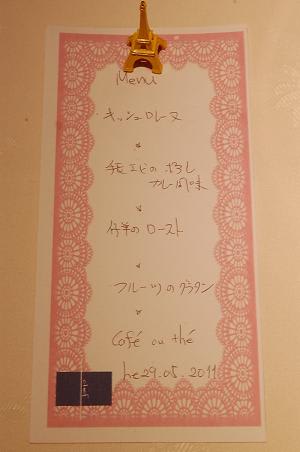 Menu
キッシュロレーヌ
手長エビの蒸し
カレー風味
仔羊のロースト
フルーツのグラタン
Café ou thé
le 29.05.2011